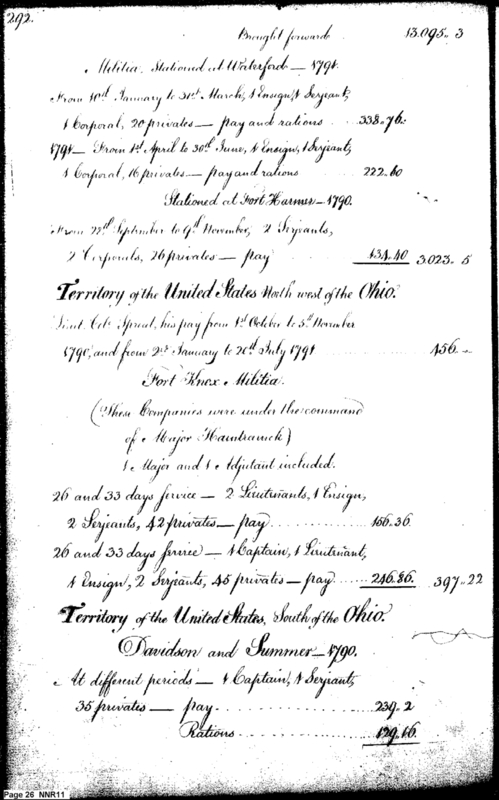 292.
Brought forward 13.095.. 3
Militia Stationed at Waterford — 1791.
From 10th January to 31st March, 1 Ensign, 1 Serjeant,
1 Corporal, 20 privates — pay and rations 338..76.
1791 — From 1st April to 30th June, 1 Ensign, 1 Serjeant,
1 Corporal, 16 privates — pay and rations 222..60
Stationed at Fort Harmer — 1790.
From 22d September to 9th November, 2 Serjeants,
2 Corporals, 26 privates — pay 134..40 3023.. 5
Territory of the United States North west of the Ohio.
Lieut. Colo. Sproat, his pay from 1st October to 5th November
1790, and from 2d January to 20th July 1791 456..
Fort Knox Militia.
(These Companies were under the command
of Major Hamtramck)
1 Major and 1 Adjutant included.
26 and 33 days service — 2 Lieutenants, 1 Ensign,
2 Serjeants, 42 privates — pay 156.36.
26 and 33 days service — 1 Captain, 1 Lieutenant,
1 Ensign, 2 Serjeants, 45 privates — pay 246.86. 397..22
Territory of the United States, South of the Ohio.
Davidson and Sumner — 1790.
At different periods — 1 Captain, 1 Serjeant,
35 privates — pay 239.. 2
Rations 129.16.
Page 26 NNR11